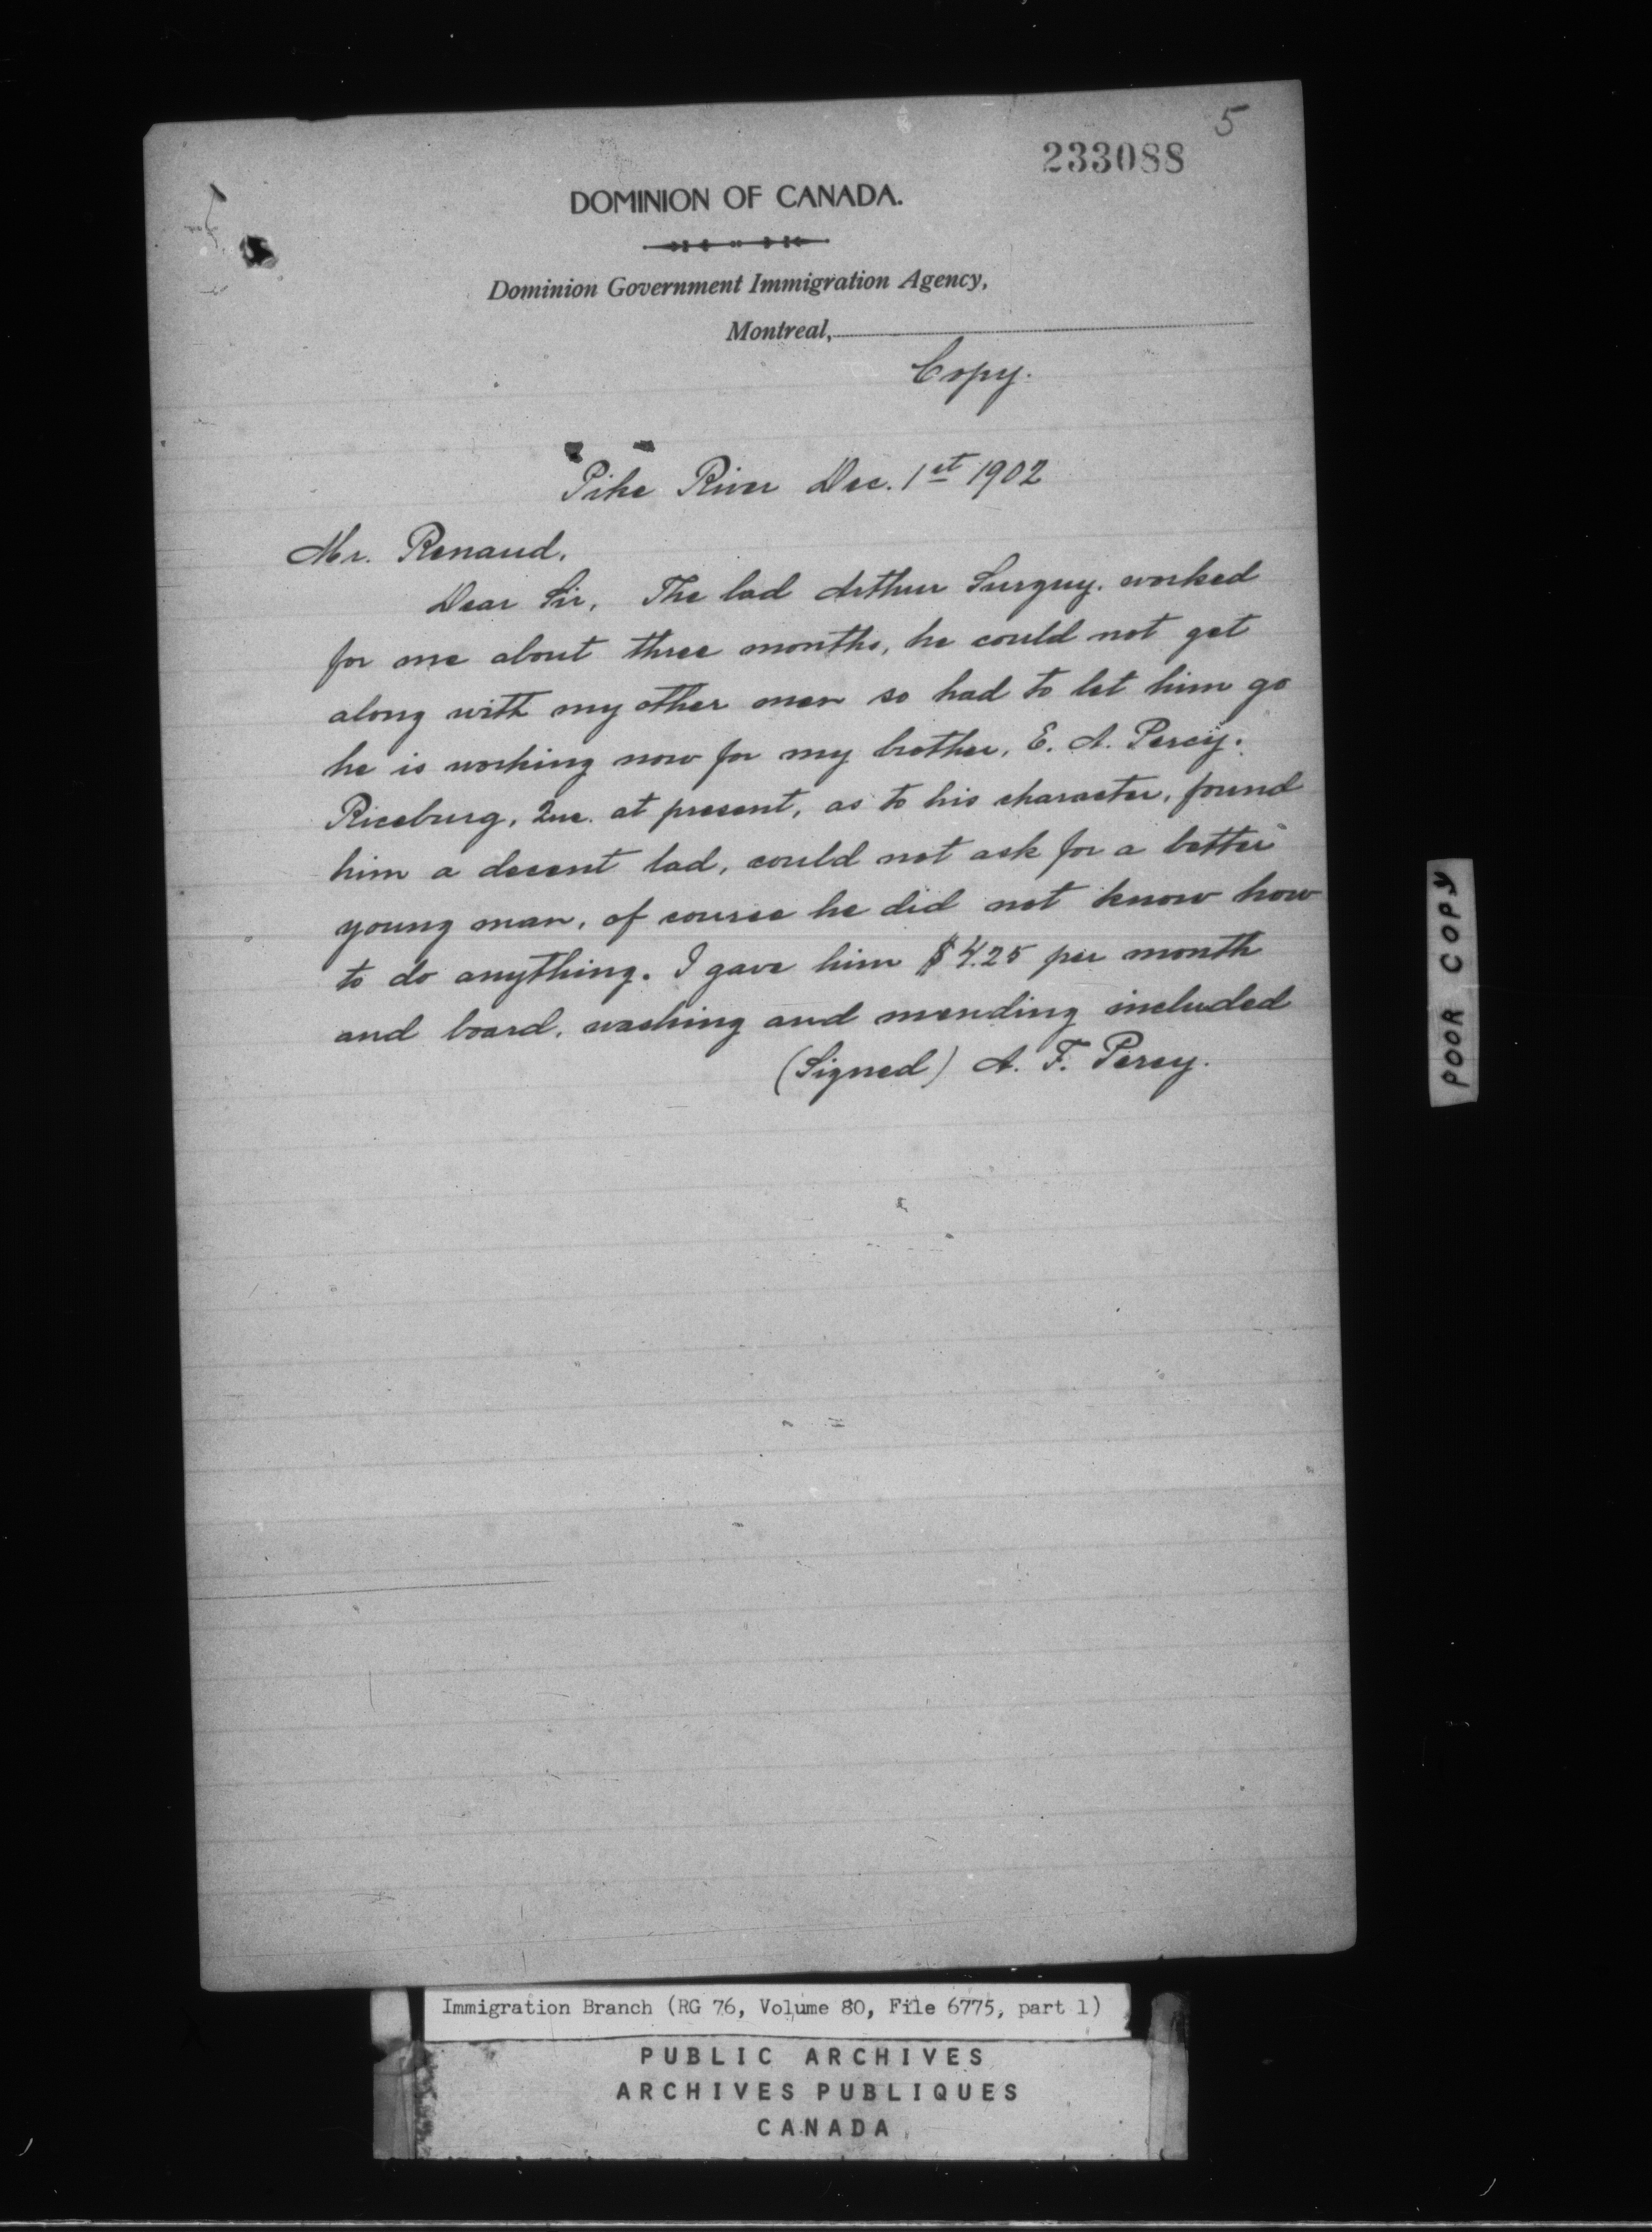 5
233088
DOMINION OF CANADA.
Dominion Government Immigration Agency,
Montreal,
Copy.
Pike River Dec. 1st 1902
Mr. Renaud.
Dear Sir, The lad Arthur Surguy. worked
for me about three months, he could not get
along with my other men so had to let him go
he is working now for my brother, E. A. Percy.
Riceburg, Que. at present, as to his character, found
him a decent lad, could not ask for a better
young man, of course he did not know how
to do anything. I gave him $4.25 per month
and board, washing and mending included
(Signed) A. F. Percy.
POOR COPY
Immigration Branch (RG 76, Volume 80, File 6775, part 1)
PUBLIC ARCHIVES
ARCHIVES PUBLIQUES
CANADA